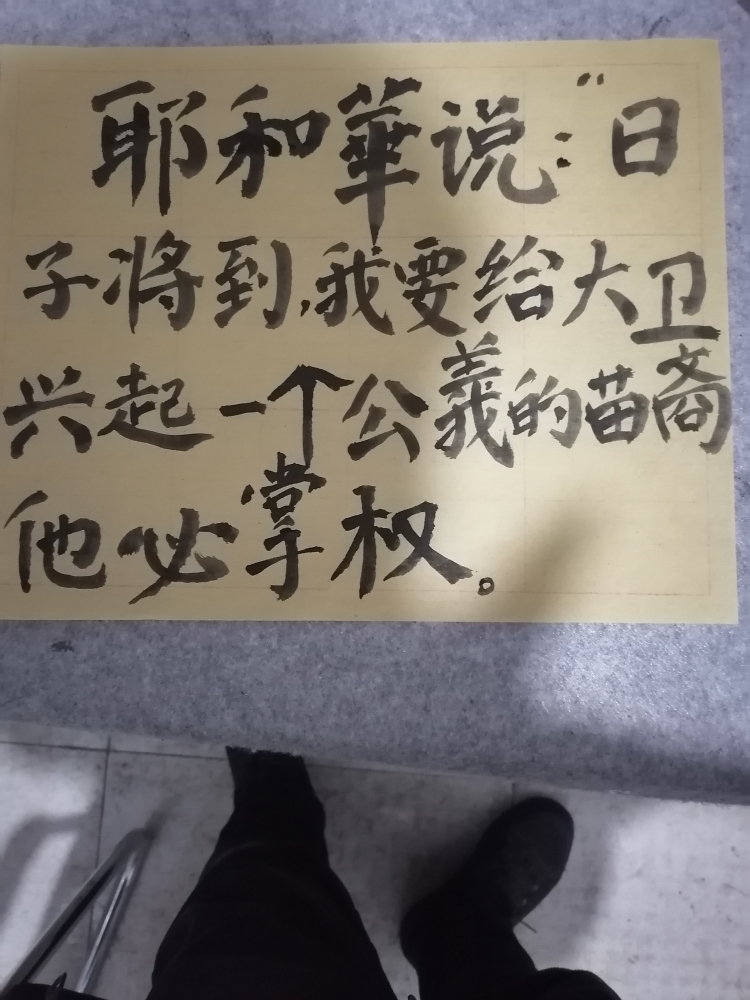 耶和華说："日
子将到,我要给大卫
兴起一个公義的苗裔
他必掌权。